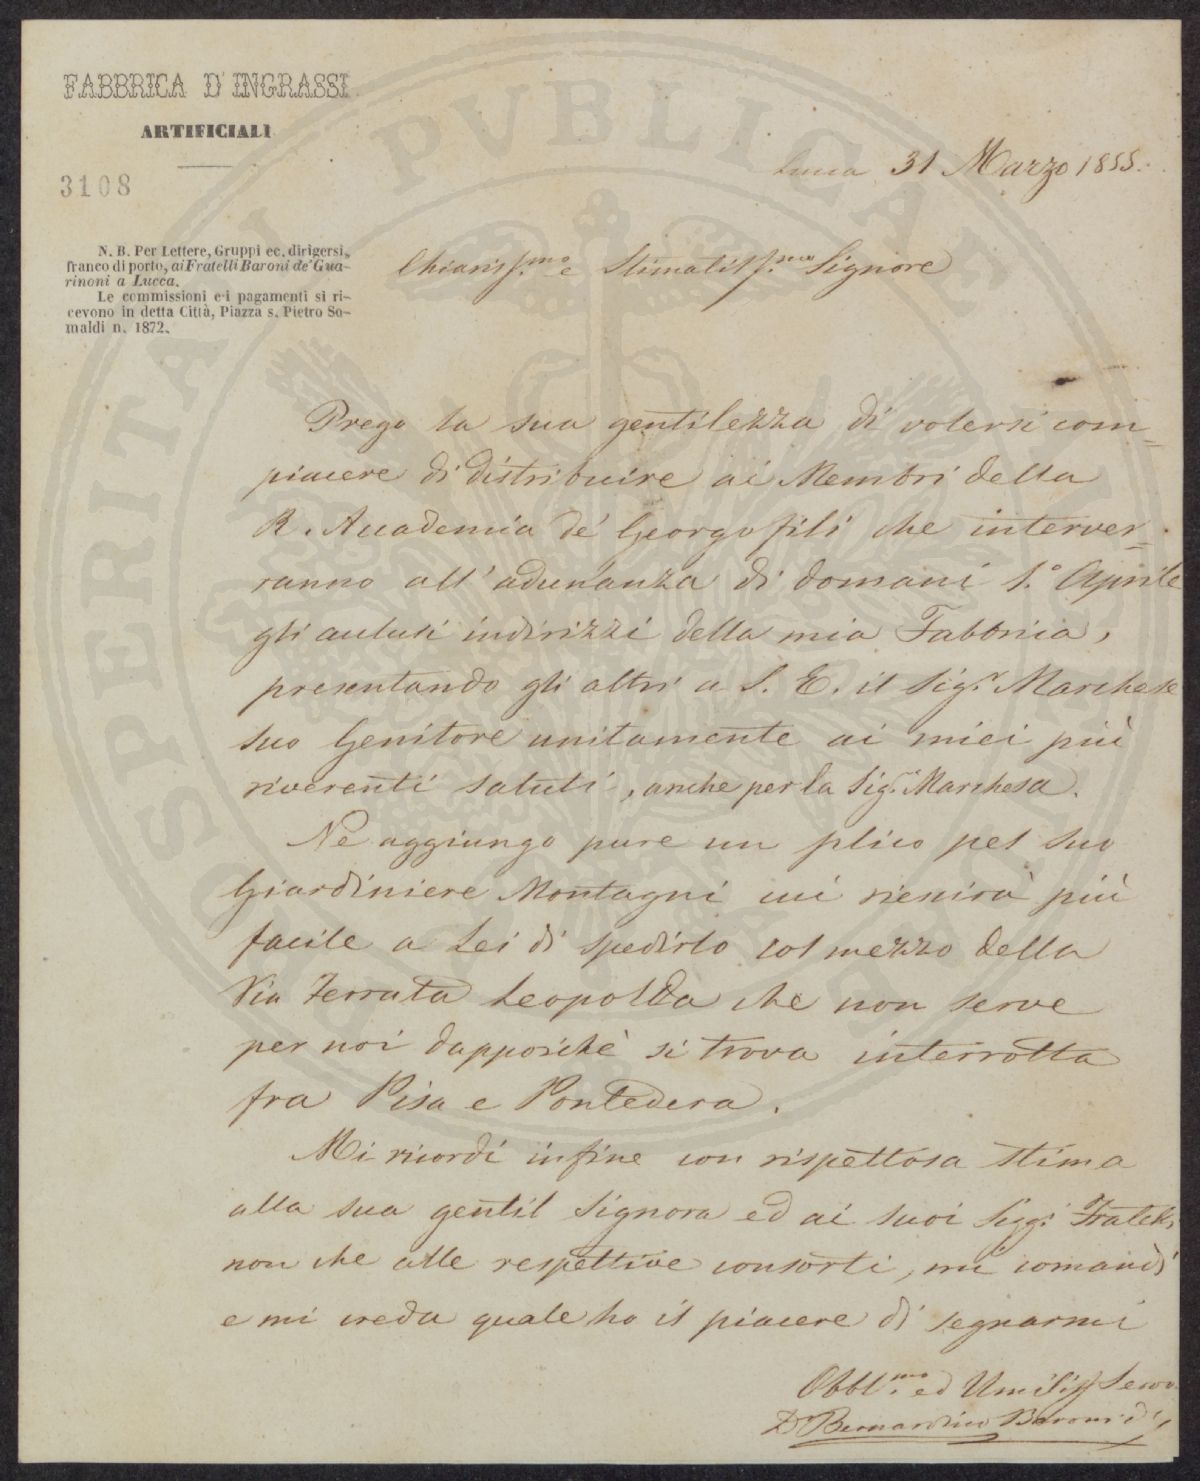 FABBRICA D'INGRASSI
ARTIFICIALI
3108
N. B. Per Lettere, Gruppi ec. dirigersi,
franco di porto, ai Fratelli Baroni de' Gua-
rinoni a Lucca.
Le commissioni e i pagamenti si ri-
cevono in detta Città, Piazza s. Pietro So-
maldi n. 1872.
Lucca 31 Marzo 1855.
Chiariss.mo e Stimatiss.mo Signore
Prego la sua gentilezza di volersi com=
piacere di distribuire ai Membri della
R. Accademia de' Georgofili che interver=
ranno all'adunanza di domani 1.° Aprile
gli acclusi indirizzi della mia Fabbrica,
presentando gli altri a S. E. il Sig.r Marchese
suo Genitore unitamente ai miei più
riverenti saluti, anche per la Sig.ra Marchesa.
Ne aggiungo pure un plico pel suo
Giardiniere Montagni cui riescirà più
facile a Lei di spedirlo col mezzo della
Via Ferrata Leopolda che non serve
per noi dapposichè si trova interrotta
fra Pisa e Pontedera.
Mi ricordi infine con rispettosa stima
alla sua gentil Signora ed ai suoi Sigg.i Fratelli,
non che alle respettive consorti, mi comandi
e mi creda quale ho il piacere di segnarmi
Obbl.mo ed Umiliss Servo
D.r Bernardino Baroni
PVBLICAE
PROSPERITATI